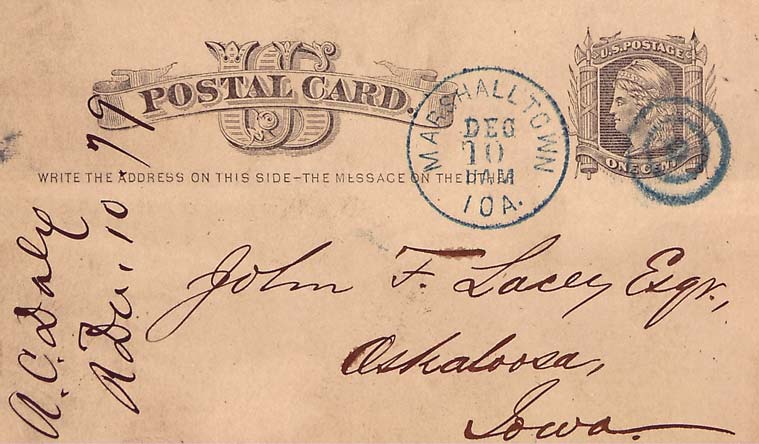 US
POSTAL CARD.
U.S. POSTAGE
ONE CENT
MARSHALLTOWN
DEC
10
IOA.
WRITE THE ADDRESS ON THIS SIDE-THE MESSAGE ON THE OTHER
John F. Lacey Esqr.,
Oskaloosa,
Iowa.
A. C. Daly
R Dec. 10. 79